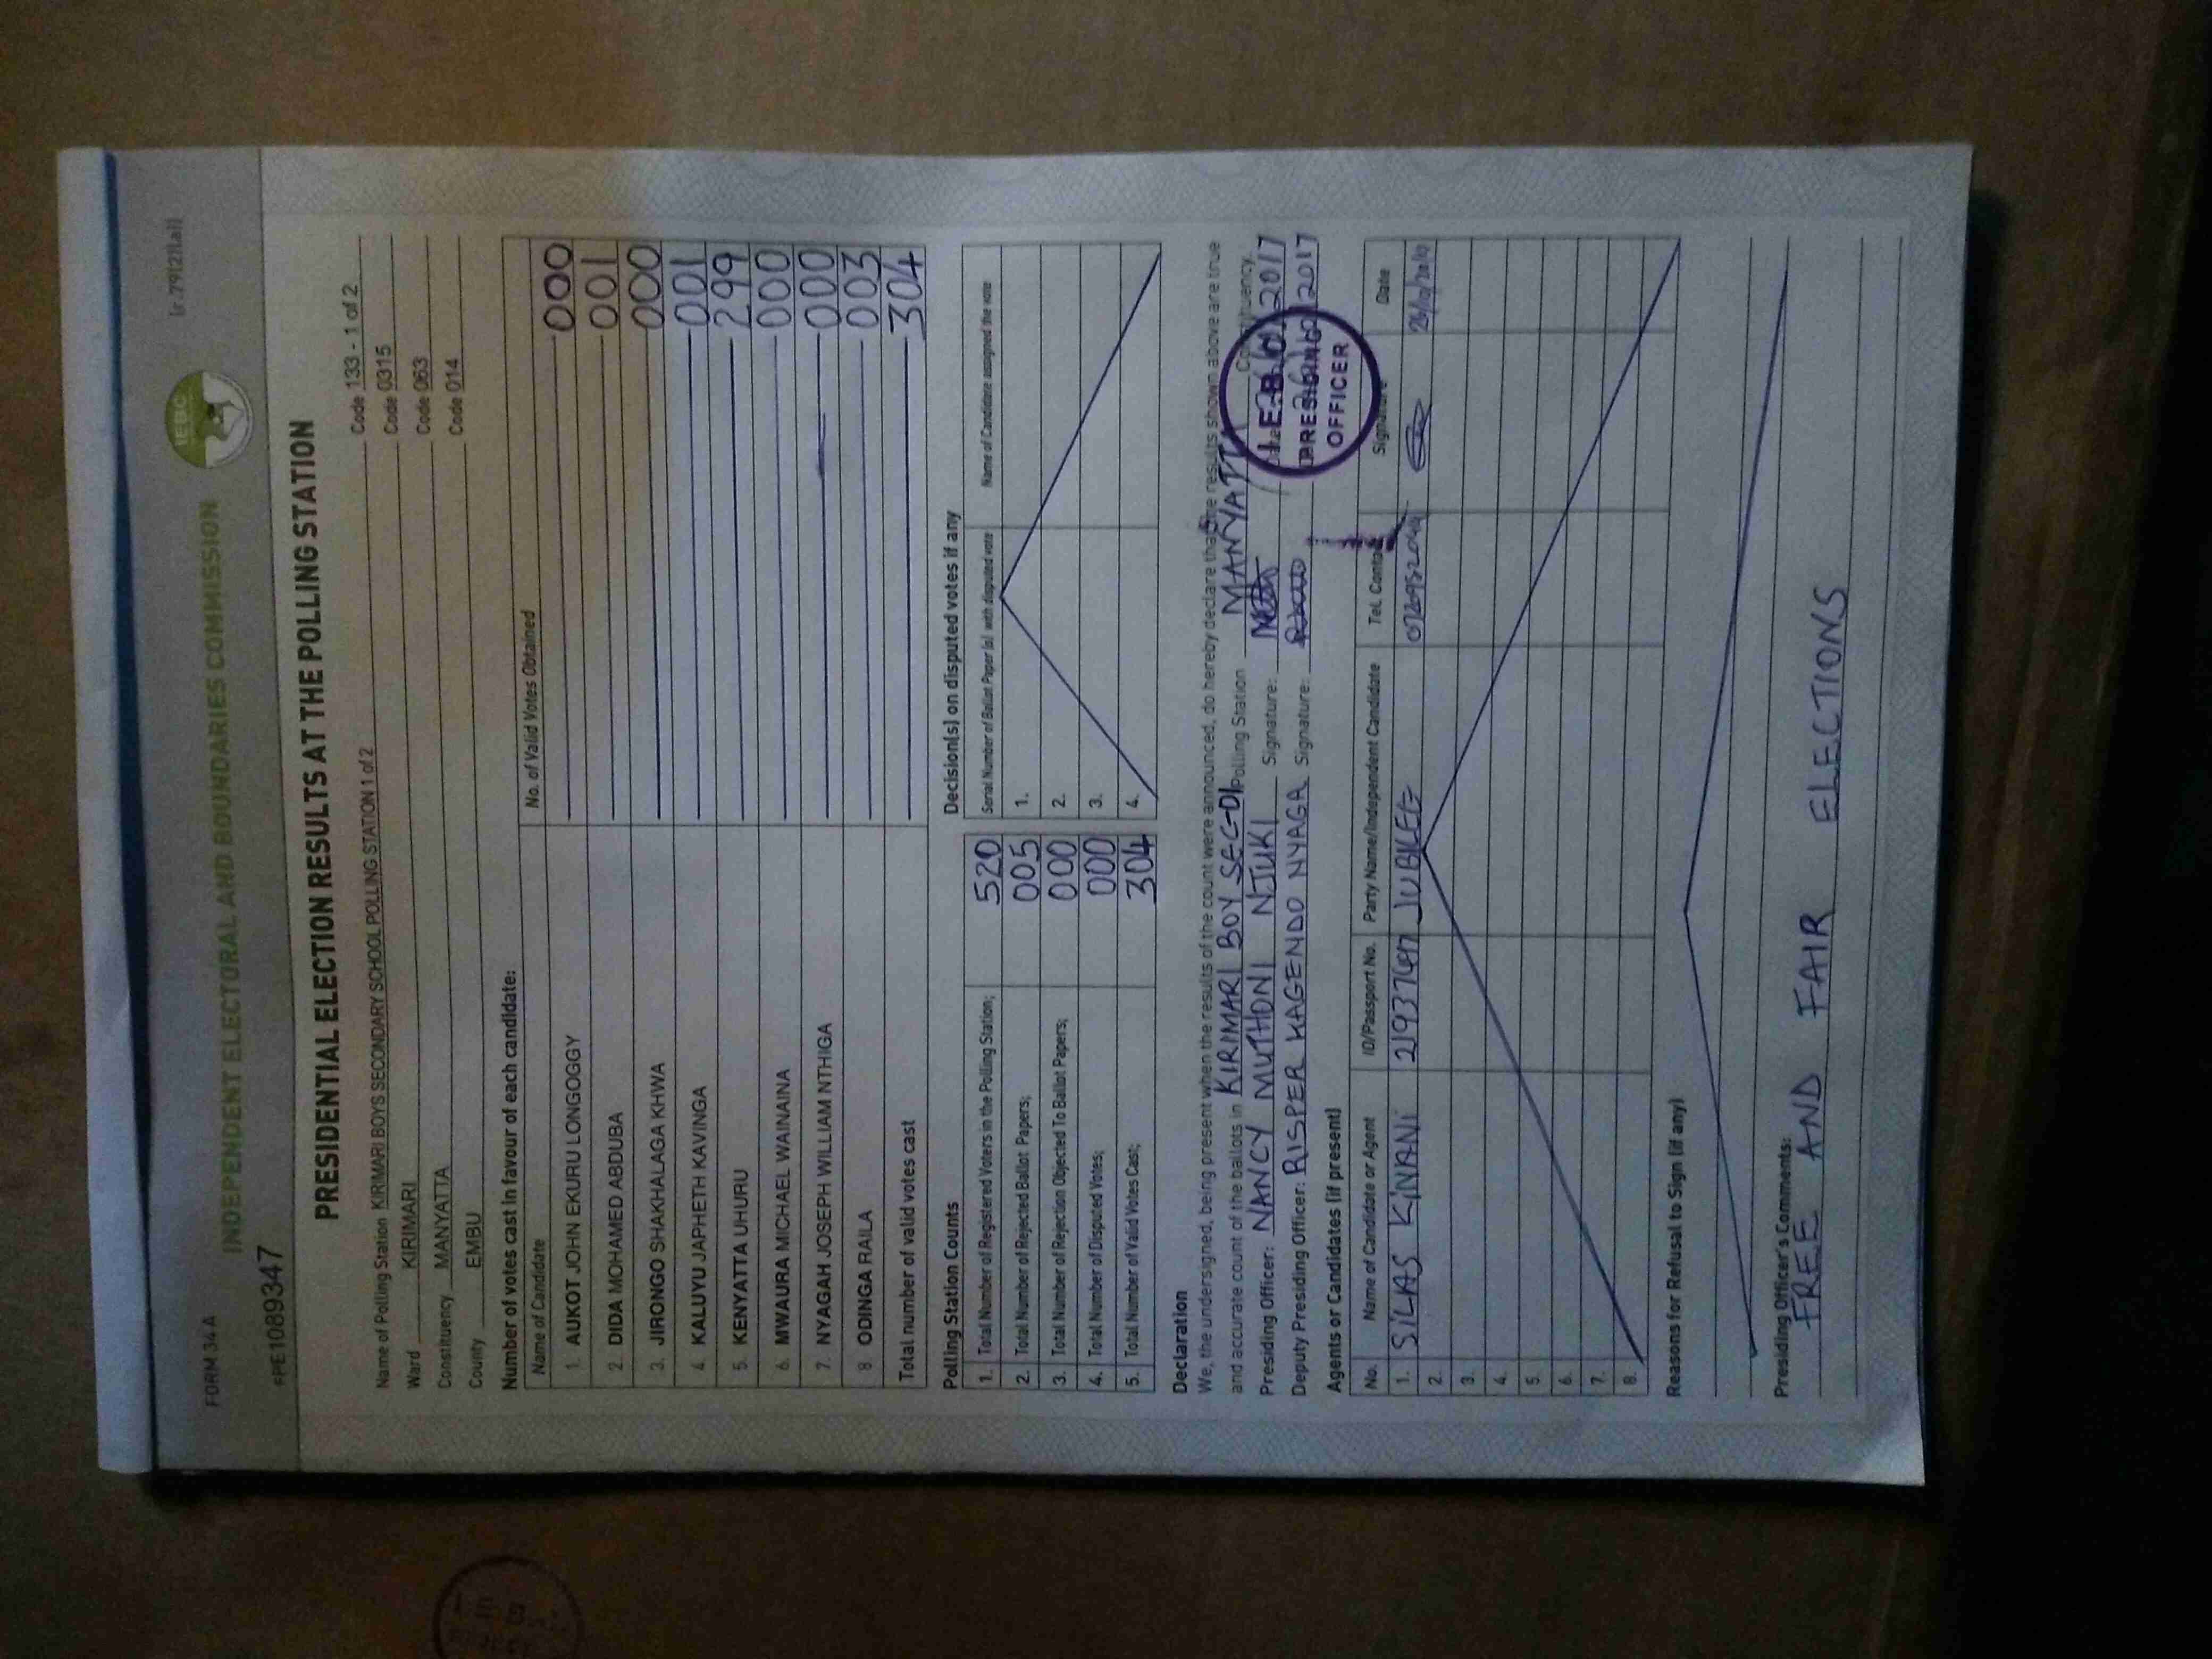 FORM 34A
INDEPENDENT ELECTORAL AND BOUNDARIES COMMISSION
IEBC
(r.79(2)(a))
FPE1089347
PRESIDENTIAL ELECTION RESULTS AT THE POLLING STATION
Name of Polling Station KIRIMARI BOYS SECONDARY SCHOOL POLLING STATION 1 of 2 Code 133 - 1 of 2
Ward KIRIMARI Code 0315
Constituency MANYATTA Code 063
County EMBU Code 014
Number of votes cast in favour of each candidate:
Name of Candidate No. of Valid Votes Obtained
1. AUKOT JOHN EKURU LONGOGGY 000
2. DIDA MOHAMED ABDUBA 001
3. JIRONGO SHAKHALAGA KHWA 000
4. KALUYU JAPHETH KAVINGA 001
5. KENYATTA UHURU 299
6. MWAURA MICHAEL WAINAINA 000
7. NYAGAH JOSEPH WILLIAM NTHIGA 000
8. ODINGA RAILA 003
Total number of valid votes cast 304
Polling Station Counts
1. Total Number of Registered Voters in the Polling Station; 520
2. Total Number of Rejected Ballot Papers; 005
3. Total Number of Rejection Objected To Ballot Papers; 000
4. Total Number of Disputed Votes; 000
5. Total Number of Valid Votes Cast; 304
Decision(s) on disputed votes if any
Serial Number of Ballot Paper (s) with disputed vote Name of Candidate assigned the vote
1.
2.
3.
4.
Declaration
We, the undersigned, being present when the results of the count were announced, do hereby declare that the results shown above are true
and accurate count of the ballots in KIRIMARI BOY SEC-DI Polling Station MANYATTA Constituency.
Presiding Officer: NANCY MUTHONI NJUKI Signature: 2017
Deputy Presiding Officer: RISPER KAGENDO NYAGA Signature: 2017
I.E.B.C
PRESIDING
OFFICER
Agents or Candidates (if present)
No. Name of Candidate or Agent ID/Passport No. Party Name/Independent Candidate Tel. Contact Signature Date
1. SILAS KINANI JUBILEE
2.
3.
4.
5.
6.
7.
8.
Reasons for Refusal to Sign (if any)
Presiding Officer's Comments:
FREE AND FAIR ELECTIONS